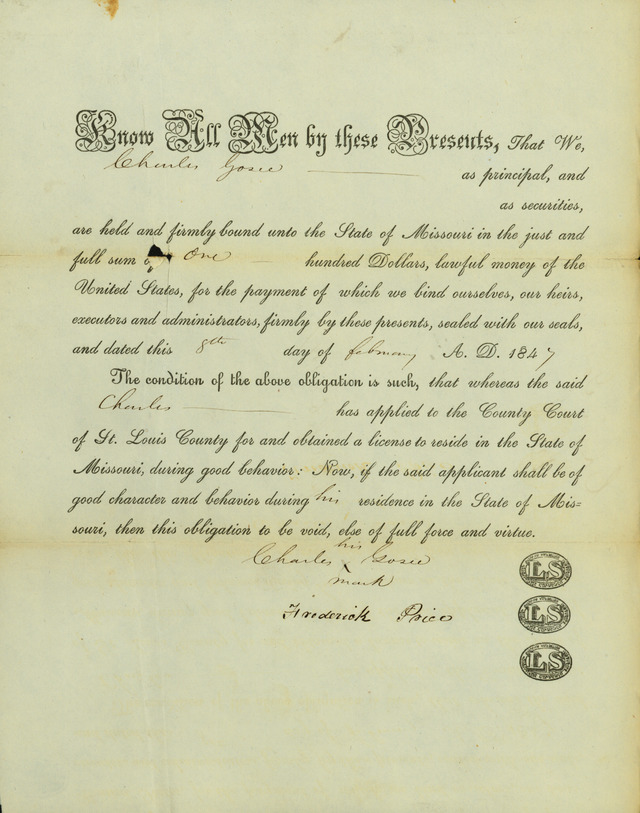 Know All Men by these Presents, That We,
Charles Gosee as principal, and
as securities,
are held and firmly bound unto the State of Missouri in the just and
full sum of One hundred Dollars, lawful money of the
United States, for the payment of which we bind ourselves, our heirs,
executors and administrators, firmly by these presents, sealed with our seals,
and dated this 8th day of February A. D. 1847
The condition of the above obligation is such, that whereas the said
Charles has applied to the County Court
of St. Louis County for and obtained a license to reside in the State of
Missouri, during good behavior: Now, if the said applicant shall be of
good character and behavior during his residence in the State of Mis=
souri, then this obligation to be void, else of full force and virtue.
his
Charles x Gosee
mark
LS
Frederick Price
LS
LS